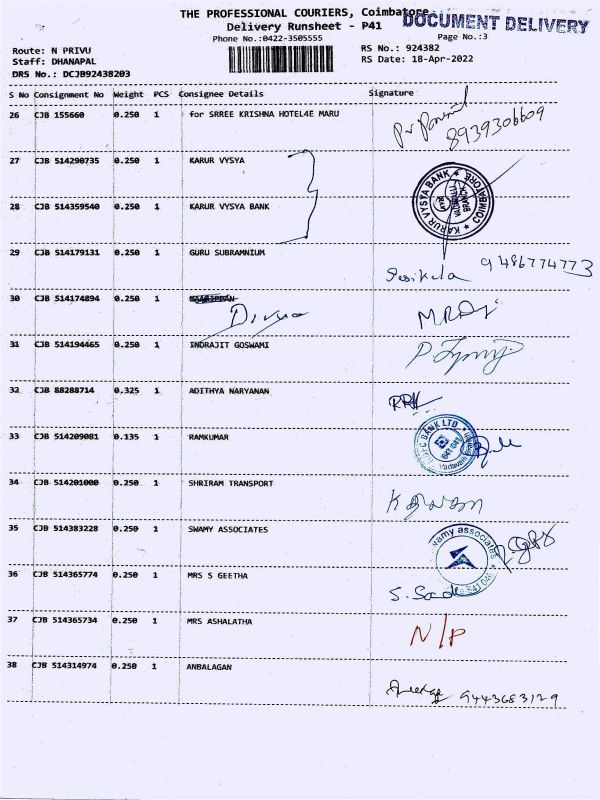 THE PROFESSIONAL COURIERS, Coimbatore
DOCUMENT DELIVERY
Delivery Runsheet - P41
Phone No.:0422-3505555
Page No.:3
Route: N PRIVU
RS No.: 924382
Staff: DHANAPAL
RS Date: 18-Apr-2022
DRS No.: DCJB92438203
S No Consignment No Weight PCS Consignee Details Signature
26 CJB 155660 0.250 1 for SRREE KRISHNA HOTEL4E MARU
8939306609
27 CJB 514290735 0.250 1 KARUR VYSYA
KARUR VYSYA BANK
COIMBATORE
28 CJB 514359540 0.250 1 KARUR VYSYA BANK
29 CJB 514179131 0.250 1 GURU SUBRAMNIUM
Sasikala 9486774773
30 CJB 514174894 0.250 1
Divya
31 CJB 514194465 0.250 1 INDRAJIT GOSWAMI
32 CJB 88288714 0.325 1 ADITHYA NARYANAN
33 CJB 514209081 0.135 1 RAMKUMAR
BANK LTD
34 CJB 514201000 0.250 1 SHRIRAM TRANSPORT
35 CJB 514383228 0.250 1 SWAMY ASSOCIATES
36 CJB 514365774 0.250 1 MRS S GEETHA
37 CJB 514365734 0.250 1 MRS ASHALATHA
N/P
38 CJB 514314974 0.250 1 ANBALAGAN
9443683129